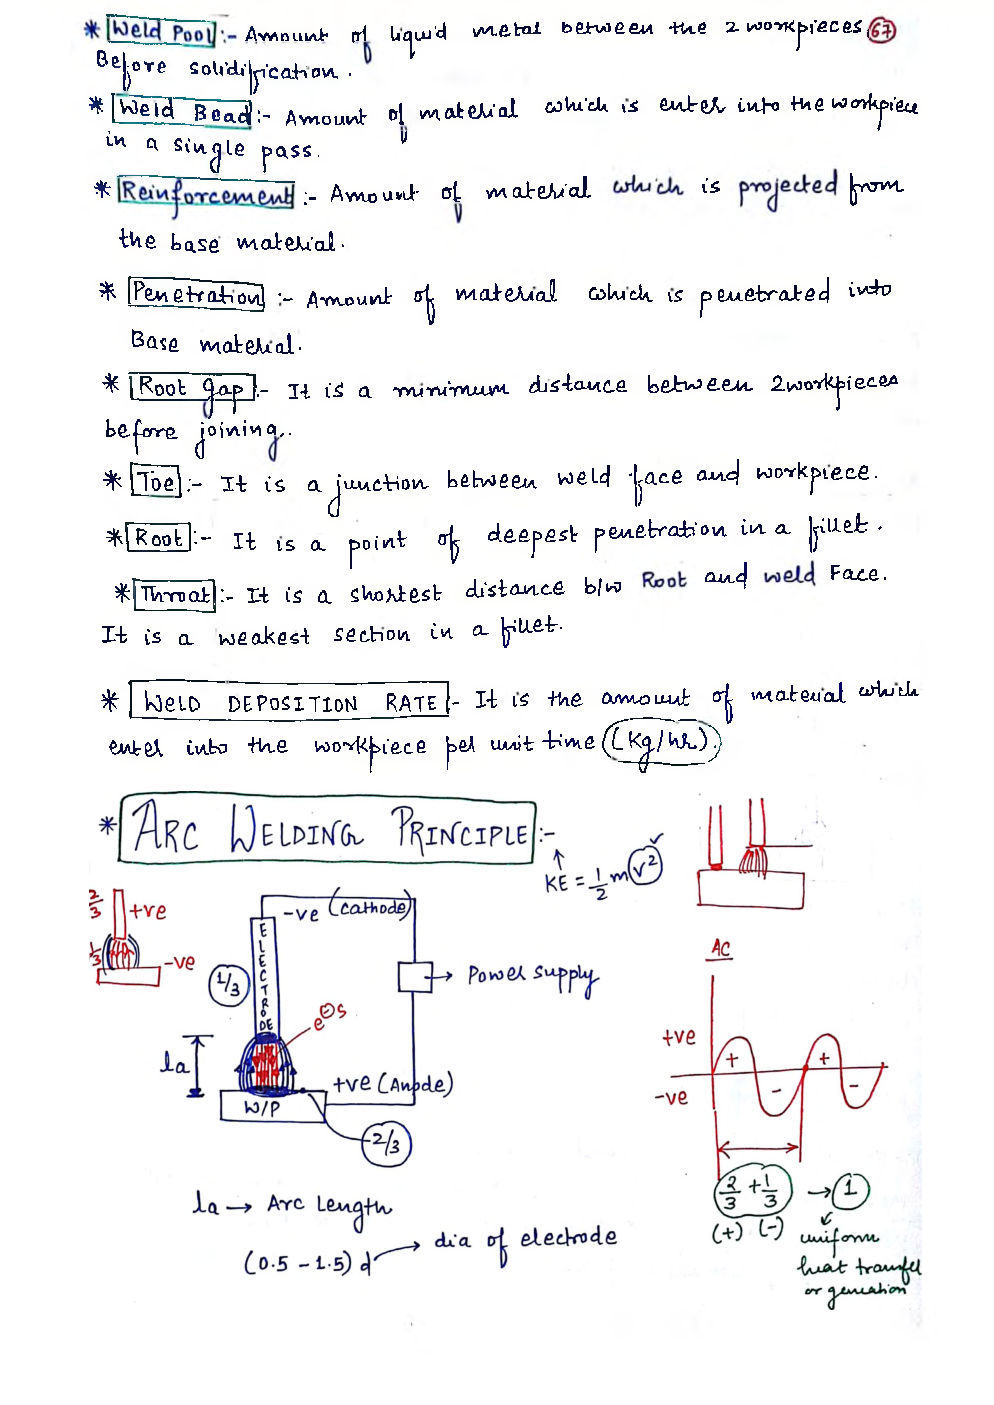 * Weld Pool :- Amount of liquid metal between the 2 workpieces 67
Before solidification.
* Weld Bead :- Amount of material which is enter into the workpiece
in a single pass.
* Reinforcement :- Amount of material which is projected from
the base material.
* Penetration :- Amount of material which is penetrated into
Base material.
* Root gap :- It is a minimum distance between 2 workpieces
before joining.
* Toe :- It is a junction between weld face and workpiece.
* Root :- It is a point of deepest penetration in a fillet.
* Throat :- It is a shortest distance b/w Root and weld Face.
It is a weakest section in a fillet.
* WELD DEPOSITION RATE :- It is the amount of material which
enter into the workpiece per unit time (kg/hr).
* ARC WELDING PRINCIPLE :-
KE = 1/2 m v²
2/3 +ve
1/3 -ve
-ve (cathode)
ELECTRODE
1/3
Power supply
e⊖s
la
+ve (Anode)
W/P
2/3
la → Arc Length
(0.5 - 1.5) d → dia of electrode
AC
+ve
+ +
-ve
- -
2/3 + 1/3 → 1
(+) (-) uniform
heat transfer
or generation